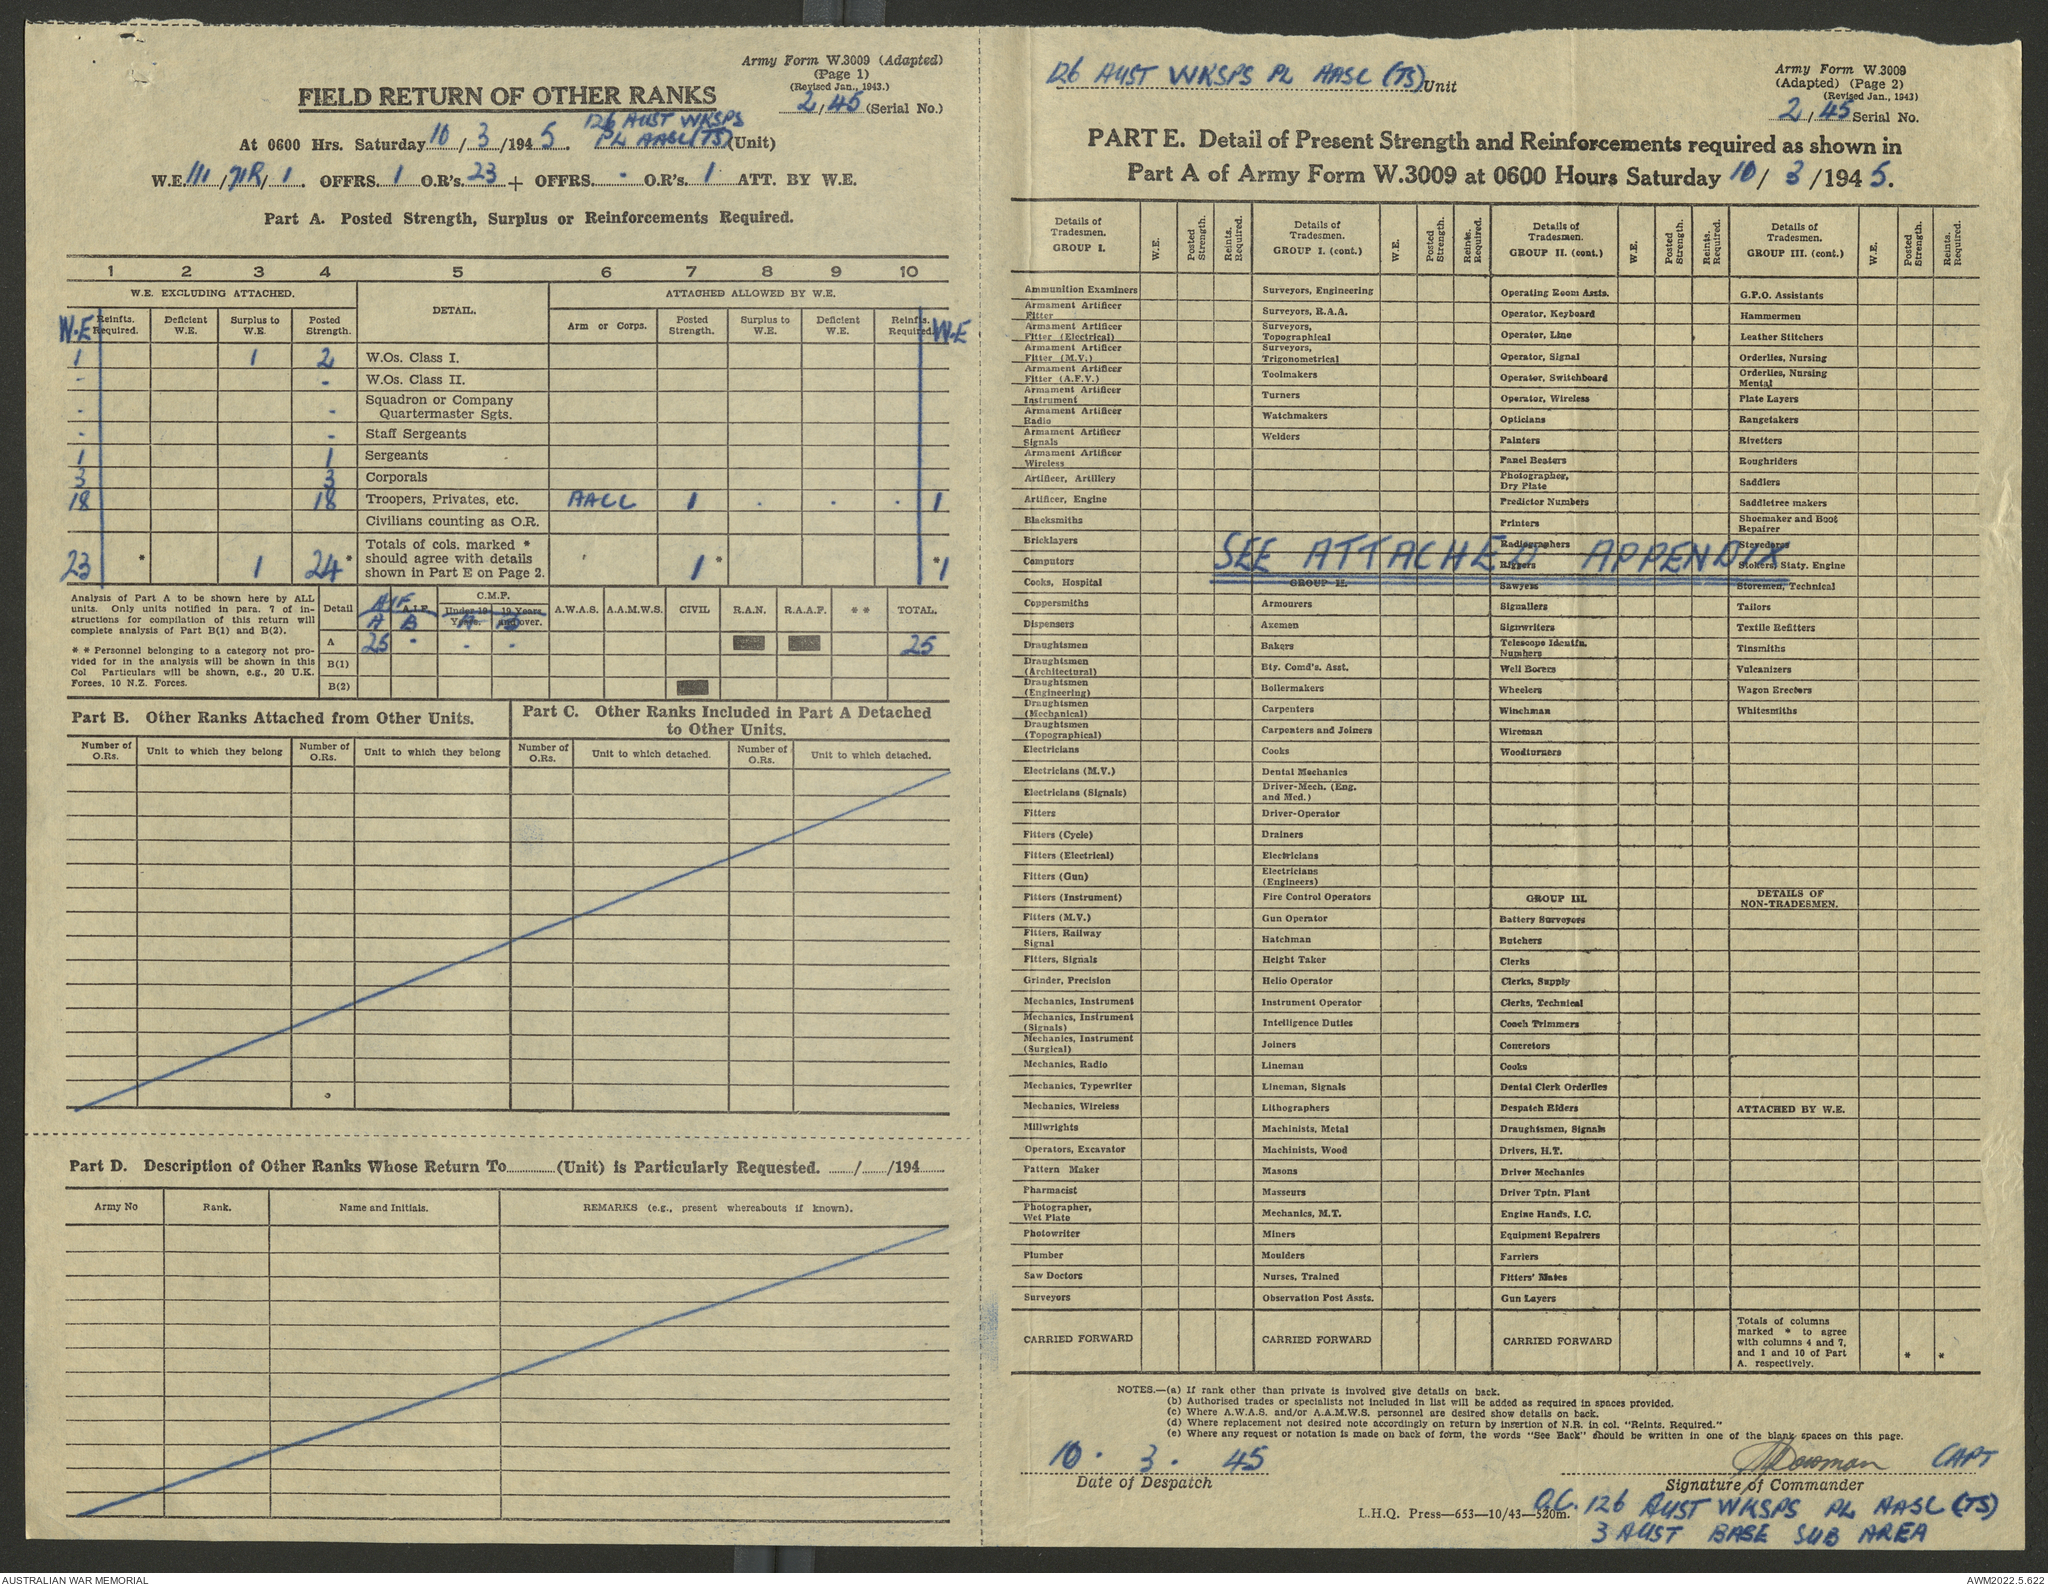 Army Form W.3009 (Adapted)
(Page 1)
(Revised Jan., 1943.)
2/45 (Serial No.)
FIELD RETURN OF OTHER RANKS
126 AUST WKSPS
At 0600 Hrs. Saturday 10/3/1945. PL AASC (TS) (Unit)
W.E. 111/71R/1. OFFRS. 1 O.R's. 23 + OFFRS. - O.R's. 1 ATT. BY W.E.
Part A. Posted Strength, Surplus or Reinforcements Required.
1 2 3 4 5 6 7 8 9 10
W.E. EXCLUDING ATTACHED. DETAIL. ATTACHED ALLOWED BY W.E.
W.E Reinfts. Required. Deficient W.E. Surplus to W.E. Posted Strength. Arm or Corps. Posted Strength. Surplus to W.E. Deficient W.E. Reinfts. Required. W.E
1 1 2 W.Os. Class I.
- - W.Os. Class II.
- - Squadron or Company Quartermaster Sgts.
- - Staff Sergeants
1 1 Sergeants
3 3 Corporals
18 18 Troopers, Privates, etc. AACC 1 - - - 1
Civilians counting as O.R.
23 * 1 24 * Totals of cols. marked * should agree with details shown in Part E on Page 2. 1 * * 1
Analysis of Part A to be shown here by ALL
units. Only units notified in para. 7 of in-
structions for compilation of this return will
complete analysis of Part B(1) and B(2).
* * Personnel belonging to a category not pro-
vided for in the analysis will be shown in this
Col Particulars will be shown, e.g., 20 U.K.
Forces, 10 N.Z. Forces.
Detail AIF A.I.F. C.M.F. A.W.A.S. A.A.M.W.S. CIVIL R.A.N. R.A.A.F. * * TOTAL.
A B Under 19 Years. 19 Years and over.
A 25 - - - 25
B(1)
B(2)
Part B. Other Ranks Attached from Other Units.
Number of O.Rs. Unit to which they belong Number of O.Rs. Unit to which they belong
Part C. Other Ranks Included in Part A Detached
to Other Units.
Number of O.Rs. Unit to which detached. Number of O.Rs. Unit to which detached.
Part D. Description of Other Ranks Whose Return To (Unit) is Particularly Requested. / /194
Army No Rank. Name and Initials. REMARKS (e.g., present whereabouts if known).
126 AUST WKSPS PL AASC (TS) Unit
Army Form W.3009
(Adapted) (Page 2)
(Revised Jan., 1943)
2/45 Serial No.
PART E. Detail of Present Strength and Reinforcements required as shown in
Part A of Army Form W.3009 at 0600 Hours Saturday 10/3/1945.
Details of Tradesmen. GROUP I. W.E. Posted Strength. Reints. Required.
Ammunition Examiners
Armament Artificer Fitter
Armament Artificer Fitter (Electrical)
Armament Artificer Fitter (M.V.)
Armament Artificer Fitter (A.F.V.)
Armament Artificer Instrument
Armament Artificer Radio
Armament Artificer Signals
Armament Artificer Wireless
Artificer, Artillery
Artificer, Engine
Blacksmiths
Bricklayers
Computors
Cooks, Hospital
Coppersmiths
Dispensers
Draughtsmen
Draughtsmen (Architectural)
Draughtsmen (Engineering)
Draughtsmen (Mechanical)
Draughtsmen (Topographical)
Electricians
Electricians (M.V.)
Electricians (Signals)
Fitters
Fitters (Cycle)
Fitters (Electrical)
Fitters (Gun)
Fitters (Instrument)
Fitters (M.V.)
Fitters, Railway Signal
Fitters, Signals
Grinder, Precision
Mechanics, Instrument
Mechanics, Instrument (Signals)
Mechanics, Instrument (Surgical)
Mechanics, Radio
Mechanics, Typewriter
Mechanics, Wireless
Millwrights
Operators, Excavator
Pattern Maker
Pharmacist
Photographer, Wet Plate
Photowriter
Plumber
Saw Doctors
Surveyors
CARRIED FORWARD
Details of Tradesmen. GROUP I. (cont.) W.E. Posted Strength. Reints. Required.
Surveyors, Engineering
Surveyors, R.A.A.
Surveyors, Topographical
Surveyors, Trigonometrical
Toolmakers
Turners
Watchmakers
Welders
SEE ATTACHED APPENDIX
GROUP II.
Armourers
Axemen
Bakers
Bty. Comd's. Asst.
Boilermakers
Carpenters
Carpenters and Joiners
Cooks
Dental Mechanics
Driver-Mech. (Eng. and Med.)
Driver-Operator
Drainers
Electricians
Electricians (Engineers)
Fire Control Operators
Gun Operator
Hatchman
Height Taker
Helio Operator
Instrument Operator
Intelligence Duties
Joiners
Lineman
Lineman, Signals
Lithographers
Machinists, Metal
Machinists, Wood
Masons
Masseurs
Mechanics, M.T.
Miners
Moulders
Nurses, Trained
Observation Post Assts.
CARRIED FORWARD
Details of Tradesmen. GROUP II. (cont.) W.E. Posted Strength. Reints. Required.
Operating Room Assts.
Operator, Keyboard
Operator, Line
Operator, Signal
Operator, Switchboard
Operator, Wireless
Opticians
Painters
Panel Beaters
Photographer, Dry Plate
Predictor Numbers
Printers
Radiographers
Riggers
Sawyers
Signallers
Signwriters
Telescope Identfn. Numbers
Well Borers
Wheelers
Winchman
Wireman
Woodturners
GROUP III.
Battery Surveyors
Butchers
Clerks
Clerks, Supply
Clerks, Technical
Coach Trimmers
Concretors
Cooks
Dental Clerk Orderlies
Despatch Riders
Draughtsmen, Signals
Drivers, H.T.
Driver Mechanics
Driver Tptn. Plant
Engine Hands, I.C.
Equipment Repairers
Farriers
Fitters' Mates
Gun Layers
CARRIED FORWARD
Details of Tradesmen. GROUP III. (cont.) W.E. Posted Strength. Reints. Required.
G.P.O. Assistants
Hammermen
Leather Stitchers
Orderlies, Nursing
Orderlies, Nursing Mental
Plate Layers
Rangetakers
Rivetters
Roughriders
Saddlers
Saddletree makers
Shoemaker and Boot Repairer
Stevedores
Stokers, Staty. Engine
Storemen, Technical
Tailors
Textile Refitters
Tinsmiths
Vulcanizers
Wagon Erectors
Whitesmiths
DETAILS OF NON-TRADESMEN.
ATTACHED BY W.E.
Totals of columns
marked * to agree
with columns 4 and 7,
and 1 and 10 of Part
A. respectively. * *
NOTES.—(a) If rank other than private is involved give details on back.
(b) Authorised trades or specialists not included in list will be added as required in spaces provided.
(c) Where A.W.A.S. and/or A.A.M.W.S. personnel are desired show details on back.
(d) Where replacement not desired note accordingly on return by insertion of N.R. in col. "Reints. Required."
(e) Where any request or notation is made on back of form, the words "See Back" should be written in one of the blank spaces on this page.
10 . 3 . 45 Bowman CAPT
Date of Despatch Signature of Commander
L.H.Q. Press—653—10/43—520m. O.C. 126 AUST WKSPS PL AASC (TS)
3 AUST BASE SUB AREA
AUSTRALIAN WAR MEMORIAL AWM2022.5.622